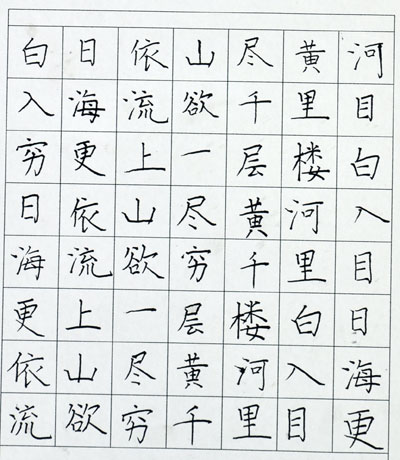 白日依山尽黄河
入海流欲千里目
穷更上一层楼白
日依山尽黄河入
海流欲穷千里目
更上一层楼白日
依山尽黄河入海
流欲穷千里目更